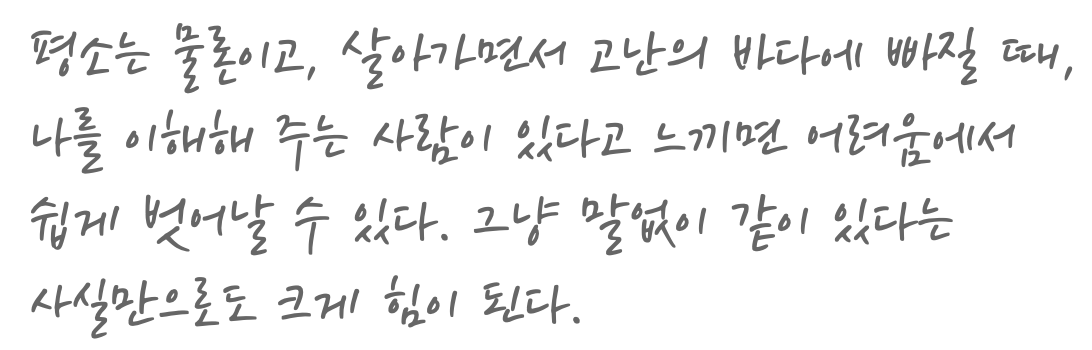 평소는 물론이고, 살아가면서 고난의 바다에 빠질 때,
나를 이해해 주는 사람이 있다고 느끼면 어려움에서
쉽게 벗어날 수 있다. 그냥 말없이 같이 있다는
사실만으로도 크게 힘이 된다.